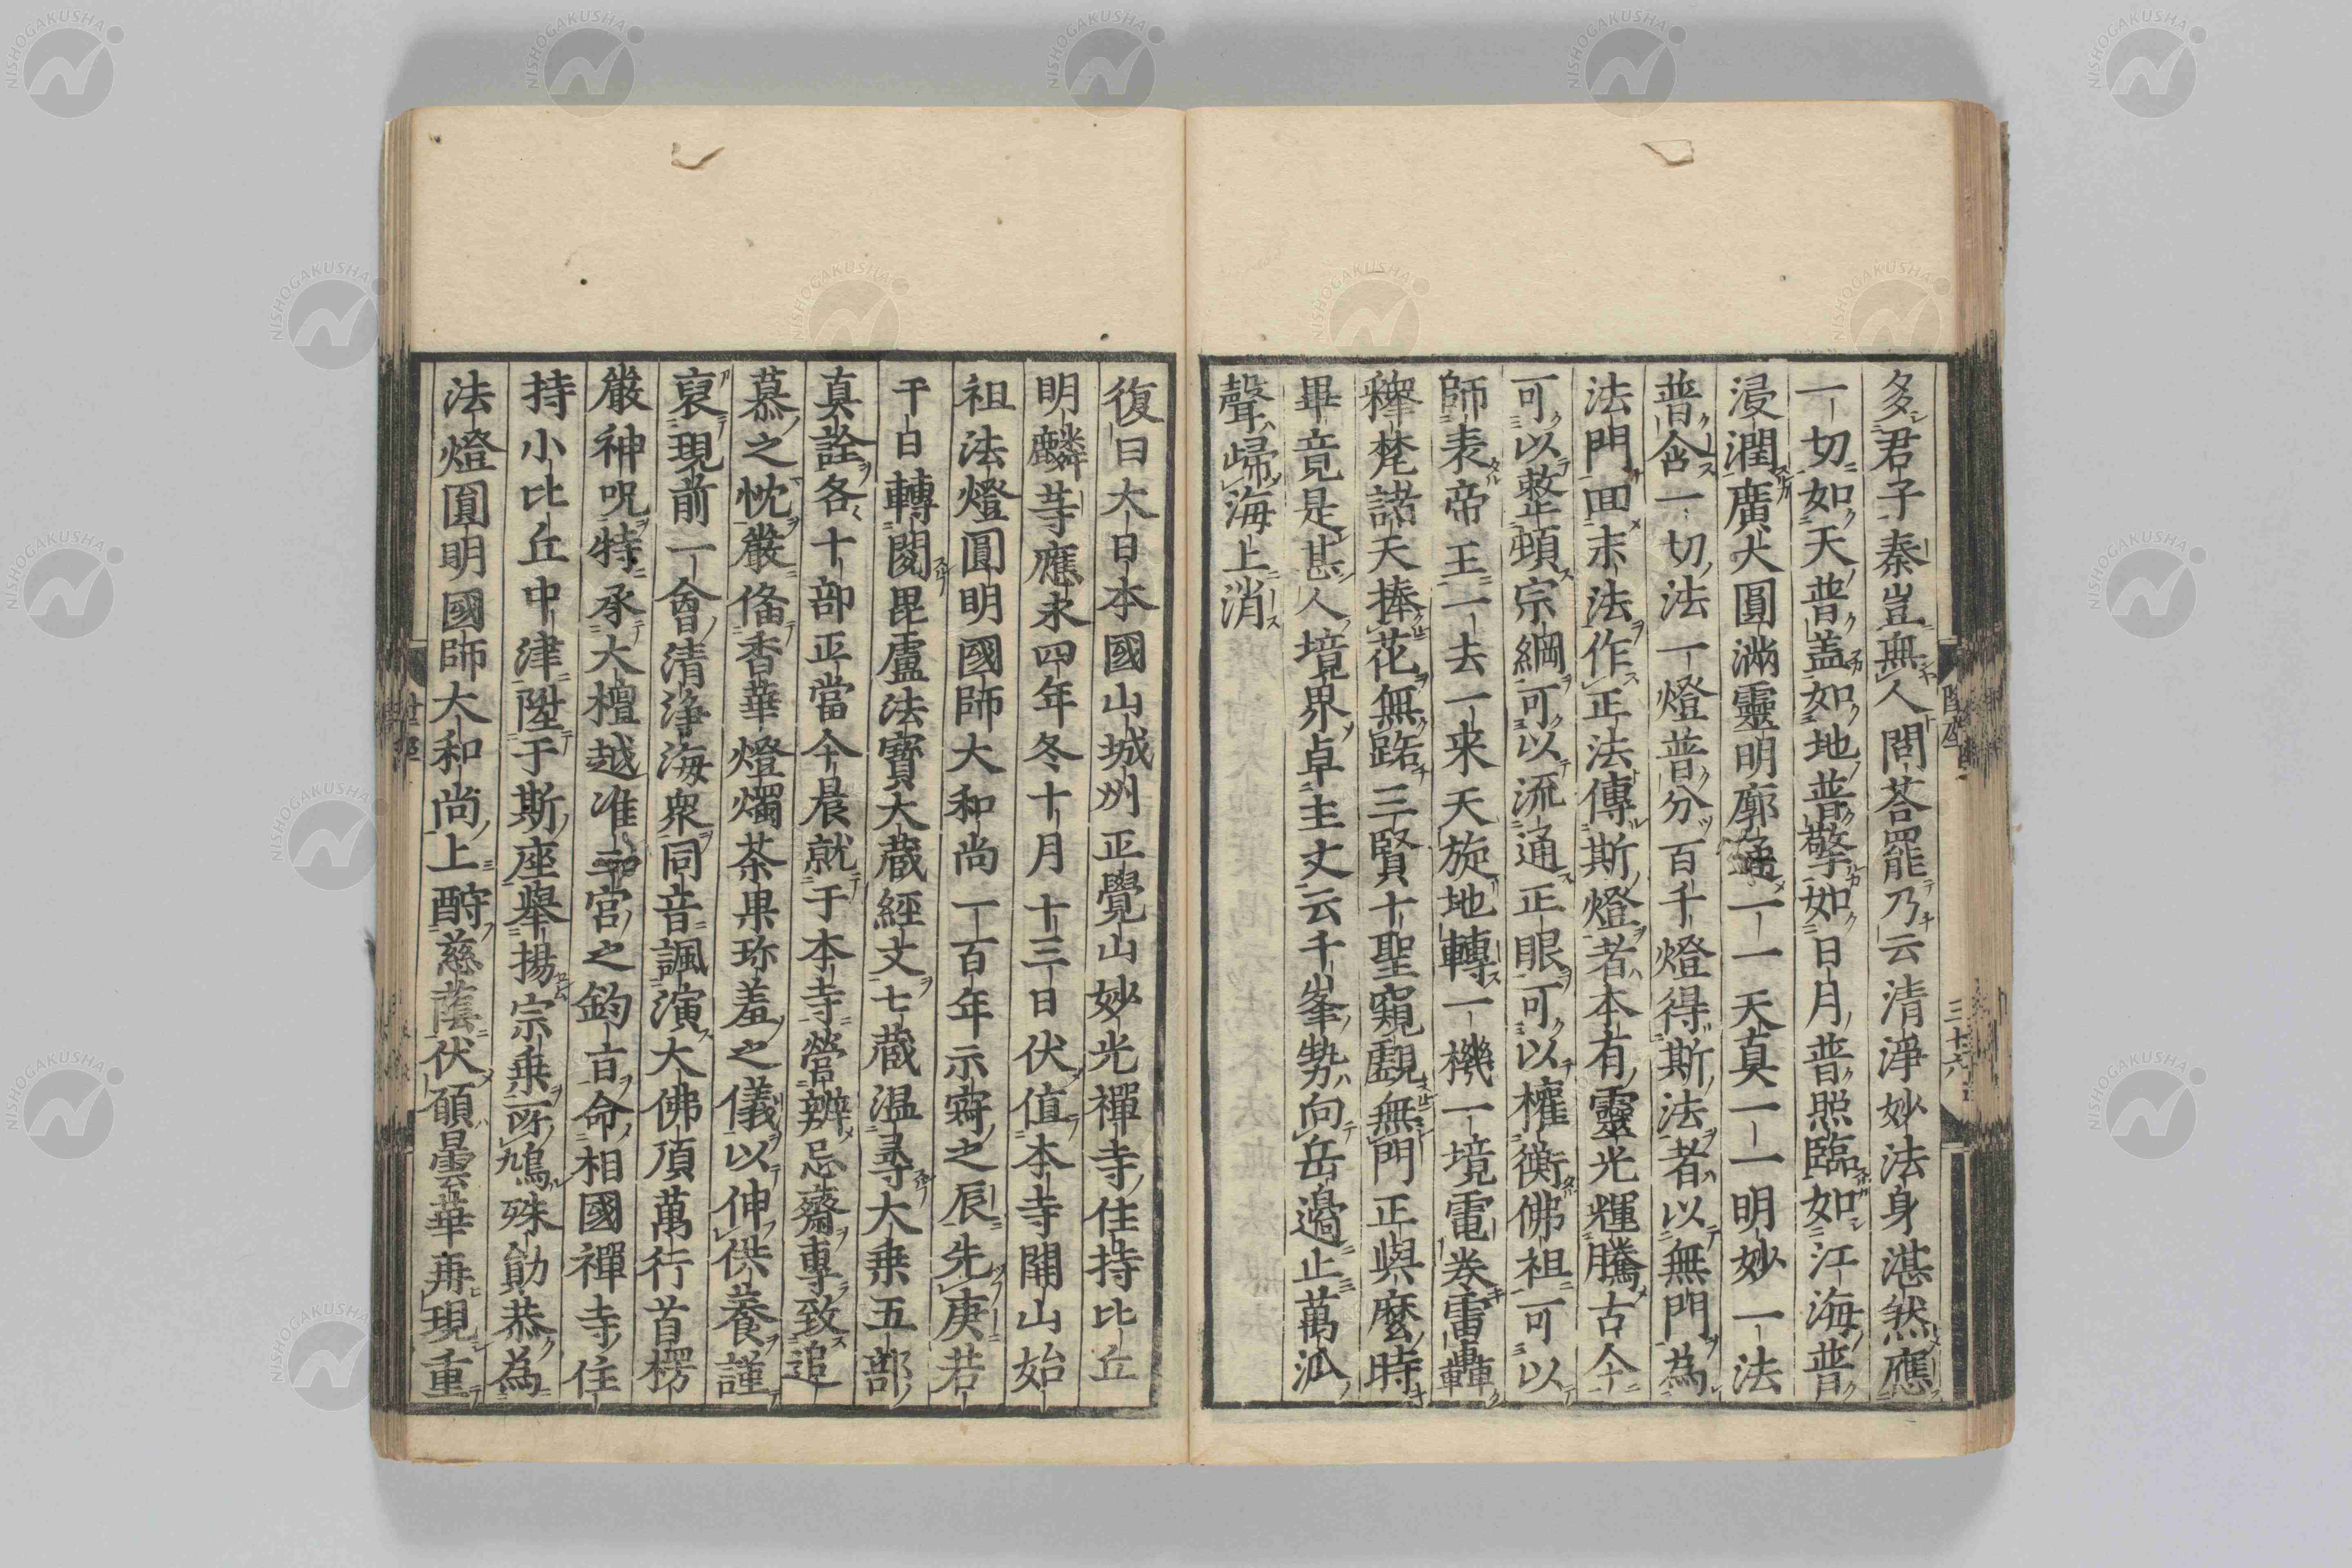 多君子秦豈無人問荅罷乃云清淨妙法身湛然應
一切如天普盖如地普擎如日月普照臨如江海普
浸潤廣大圓滿靈明廓通一一天真一一明妙一法
普含一切法一燈普分百千燈得斯法者以無門為
法門回末法作正法傳斯燈者本有靈光輝騰古今
可以整頓宗綱可以流通正眼可以權衡佛祖可以
師表帝王一去一来天旋地轉一機一境電卷雷轟
釋梵諸天捧花無路三賢十聖窺覰無門正與麼時
畢竟是甚人境界卓主丈云千峯勢向岳邊止萬派
聲歸海上消
三十六
復曰大日本國山城州正覺山妙光禪寺住持比丘
明麟等應永四年冬十月十三日伏值本寺開山始
祖法燈圓明國師大和尚一百年示寂之辰先庚若
干日轉閱毘盧法寶大藏經文七藏温尋大乗五部
真詮各十部正當今晨就于本寺營辨忌齋專致追
慕之忱嚴俻香華燈燭茶果珎羞之儀以伸供養謹
裒現前一會清淨海衆同音諷演大佛頂萬行首楞
嚴神呪特承大檀越准三宮之鈞旨命相國禪寺住
持小比丘中津陞于斯座舉揚宗乗所鳩殊勛恭為
法燈圓明國師大和尚上酧慈蔭伏願曇華再現重